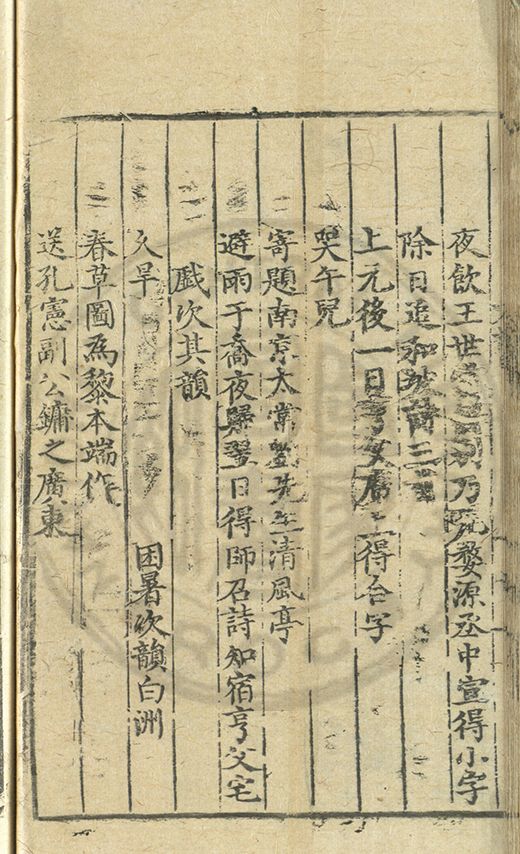 夜飲王世乃兄婺源丞中宣得小字
除日追和坡詩三
上元後一日席上得台字
哭午兒
寄題南京太常先生清風亭
避雨于喬夜歸翌日得師召詩知宿亨父宅
戲次其韻
久旱 困暑次韻白洲
春草圖為黎本端作
送孔憲副公鏞之廣東